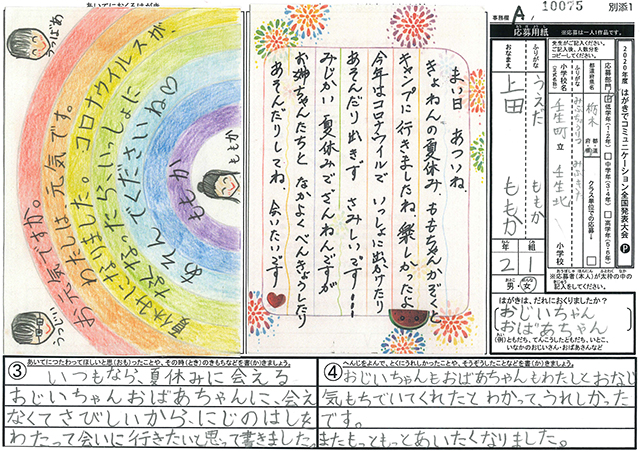 あいてにおくるはがき
事務種 A 10075 別添1
うっばあ
うっじい
お元気ですか。
わたしは元気です。
コロナウイルスが、
なくなったら、いっしょに
あそんでくださいね♡
ももか
ももか
まい日 あついね。
きょねんの夏休み、ももちゃんかぞくと
キャンプに行きましたね。楽しかったよ
今年はコロナウイルで いっしょに出かけたり
あそんだり出きず さみしいです…
みじかい 夏休みで ざんねんですが
お姉ちゃんたちと なかよくべんきょうしたり
あそんだりしてね。会いたいです
応募用紙
※応募は一人1作品です。
2020年度 はがきでコミュニケーション全国発表大会 P
応募部門 低学年(1・2年) 中学年(3・4年) 高学年(5・6年)
都道府県名 栃木
小学校名 壬生町立 壬生北 小学校
クラス単位での応募
ふりがな うえだ ももか
おなまえ 上田 ももか
2年 1組
男・女
※応募者(本人)が太枠の中の
記入をしてください。
はがきは、だれにおくりましたか?
おじいちゃん
おばあちゃん
(例)ともだち、てんこうしたともだち、いとこ、
いなかのおじいさん・おばあさんなど
③ あいてにつたわってほしいと思(おも)ったことや、その時(とき)のきもちなどを書(か)きましょう。
いつもなら、夏休みに会える
おじいちゃんおばあちゃんに、会え
なくてさびしいから、にじのはしを
わたって会いに行きたいと思って書きました。
④ へんじをよんで、とくにうれしかったことや、そうぞうしたことなどを書(か)きましょう。
おじいちゃんもおばあちゃんもわたしとおなじ
気もちでいてくれたとわかって、うれしかった
です。
またもっともっとあいたくなりました。